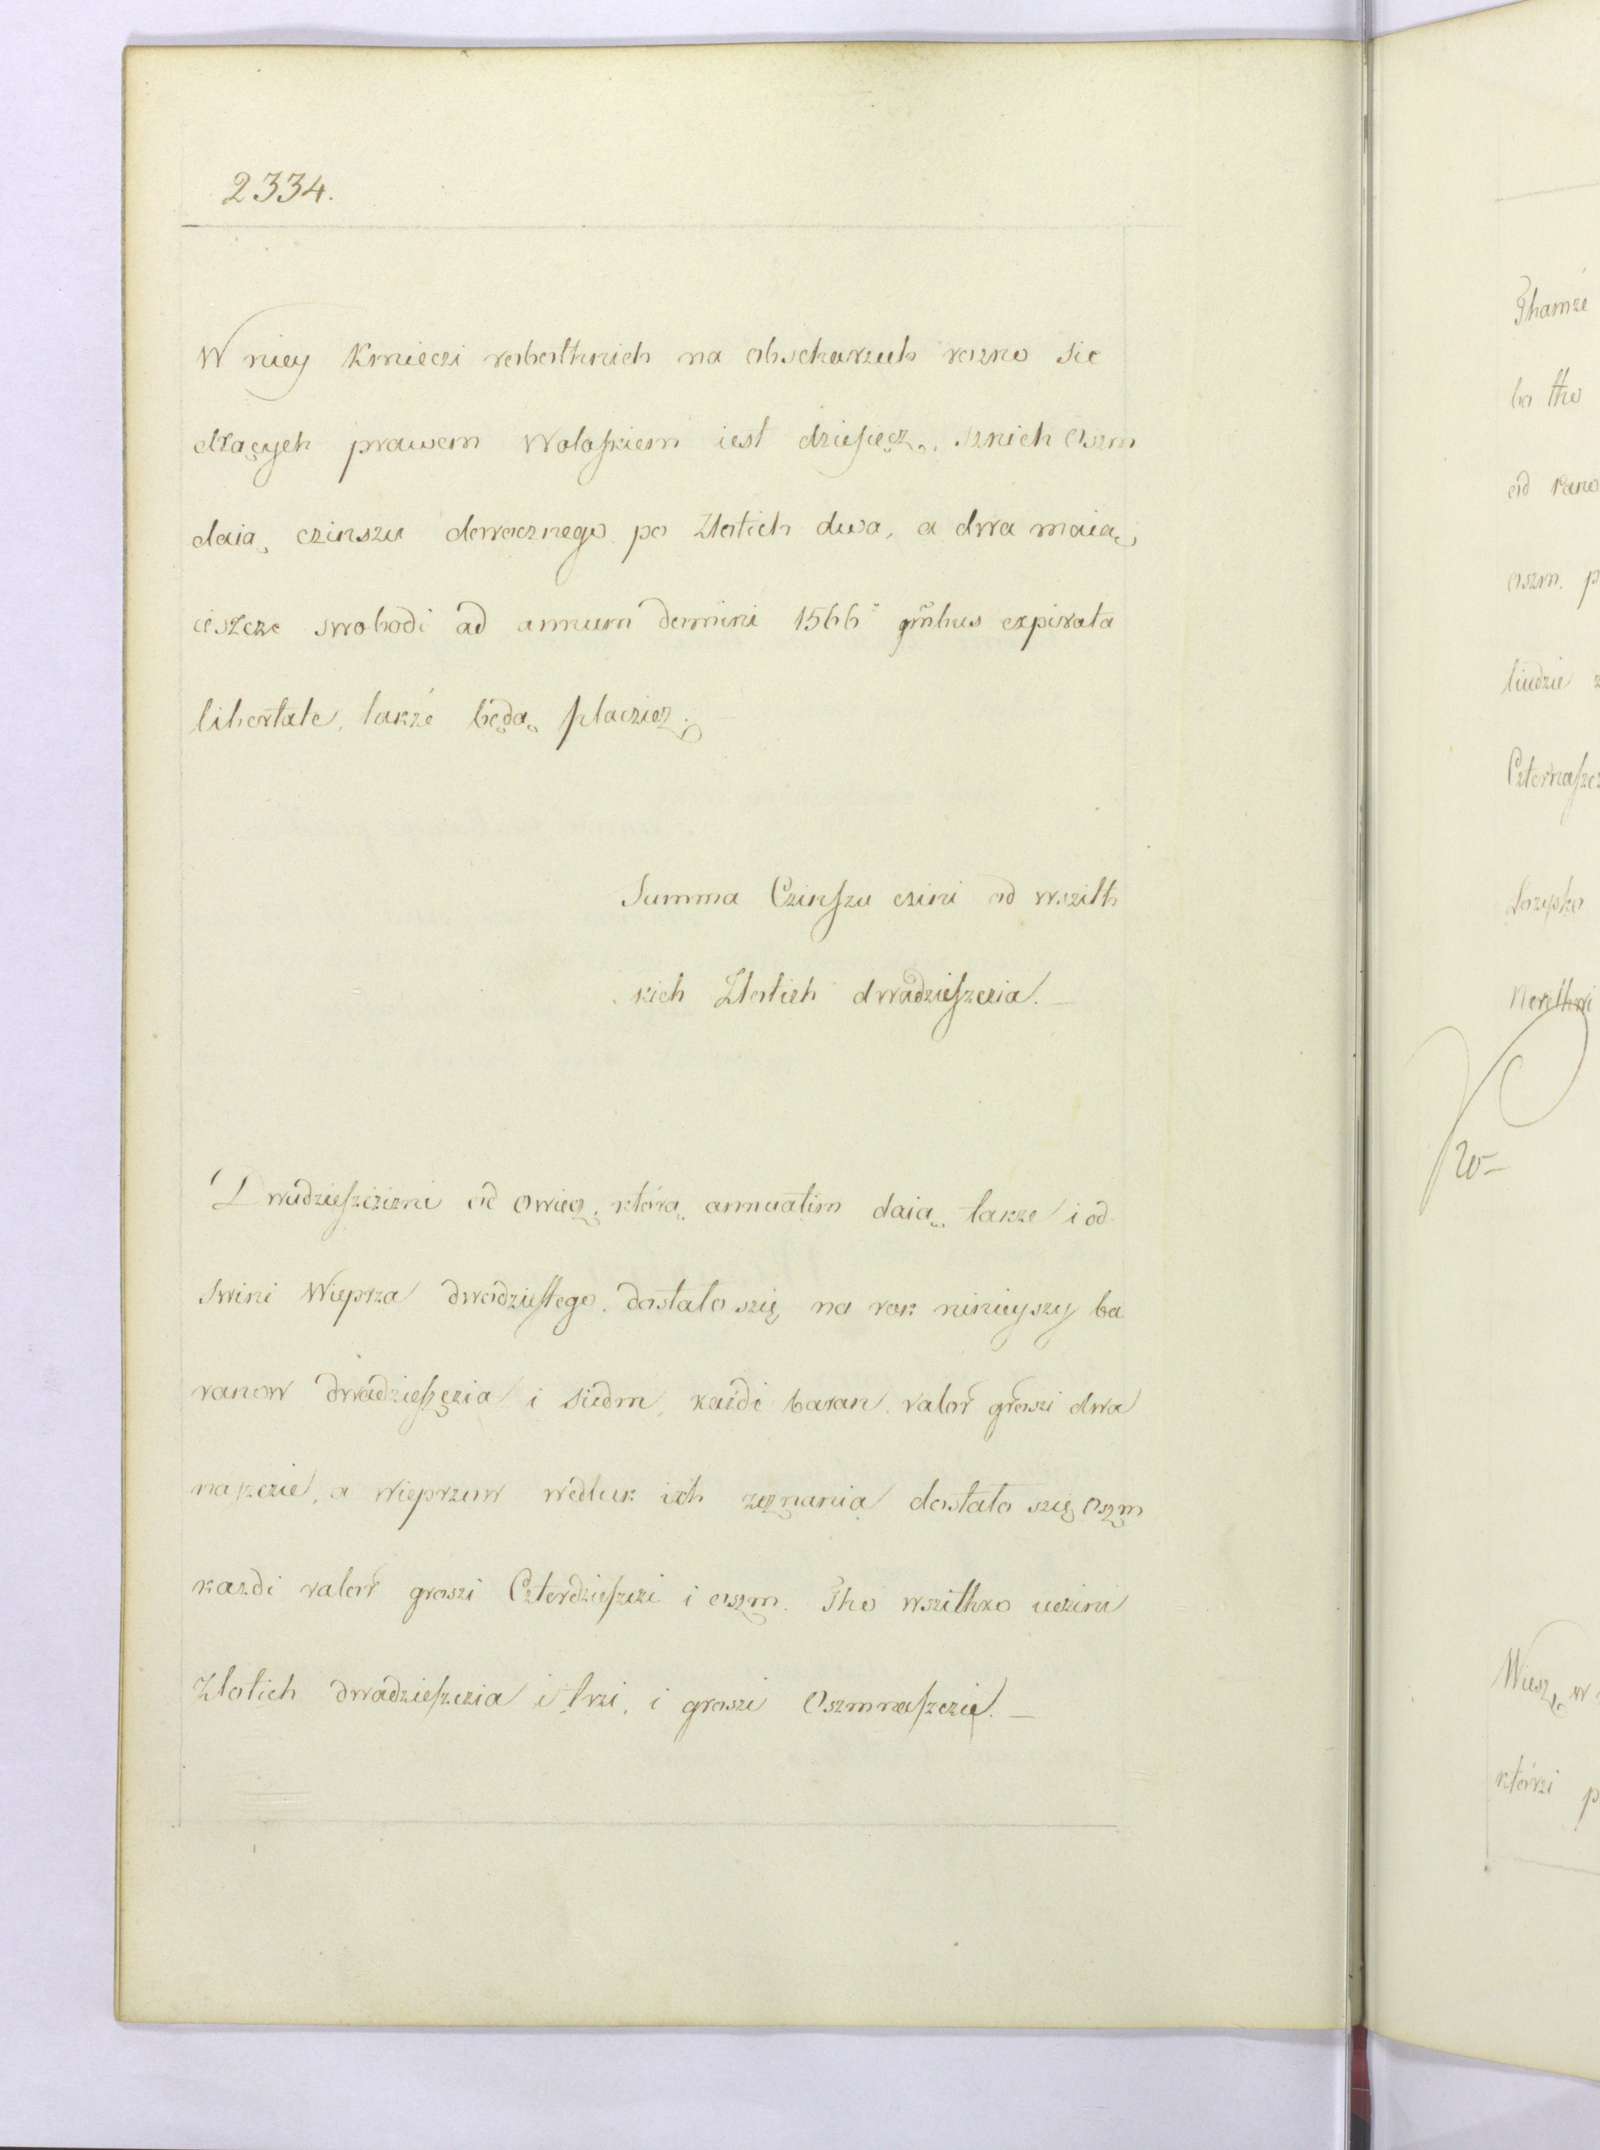 2334.
W niey Kmieczi robothnich na obscharzuch rozno sie
dzących prawem Wołoskiem iest dziesięcz, sznich oszm
daią czinszu dorocznego po Złotich dwa, a dwa maią
ieszcze swobodi ad annum domini 1566 qnibus expirata
libertate, takze będą płaczicz.
Summa Czinszu czini od wszith
kich Złotich dwadzieszczia.
Dwudzieszcizni od owiec, którą annuatim daią takze i od
swini Wieprza dwadziestego. dostało szię na rok ninieyszy ba
ranow dwadzieszczia i siedm, każdi baran valor groszi dwa
naszczie, a wieprzow wedluk ich zeznania dostało szię oszm
kazdi valor groszi Czterdzieszczi i oszm. Tho wszithko uczini
Złotich dwadzieszczia i trzi, i groszi Oszmnaszczie.
Thamze
bo tho
od
oszm. p
ludzie z
Czternaszcz
w
którzi p